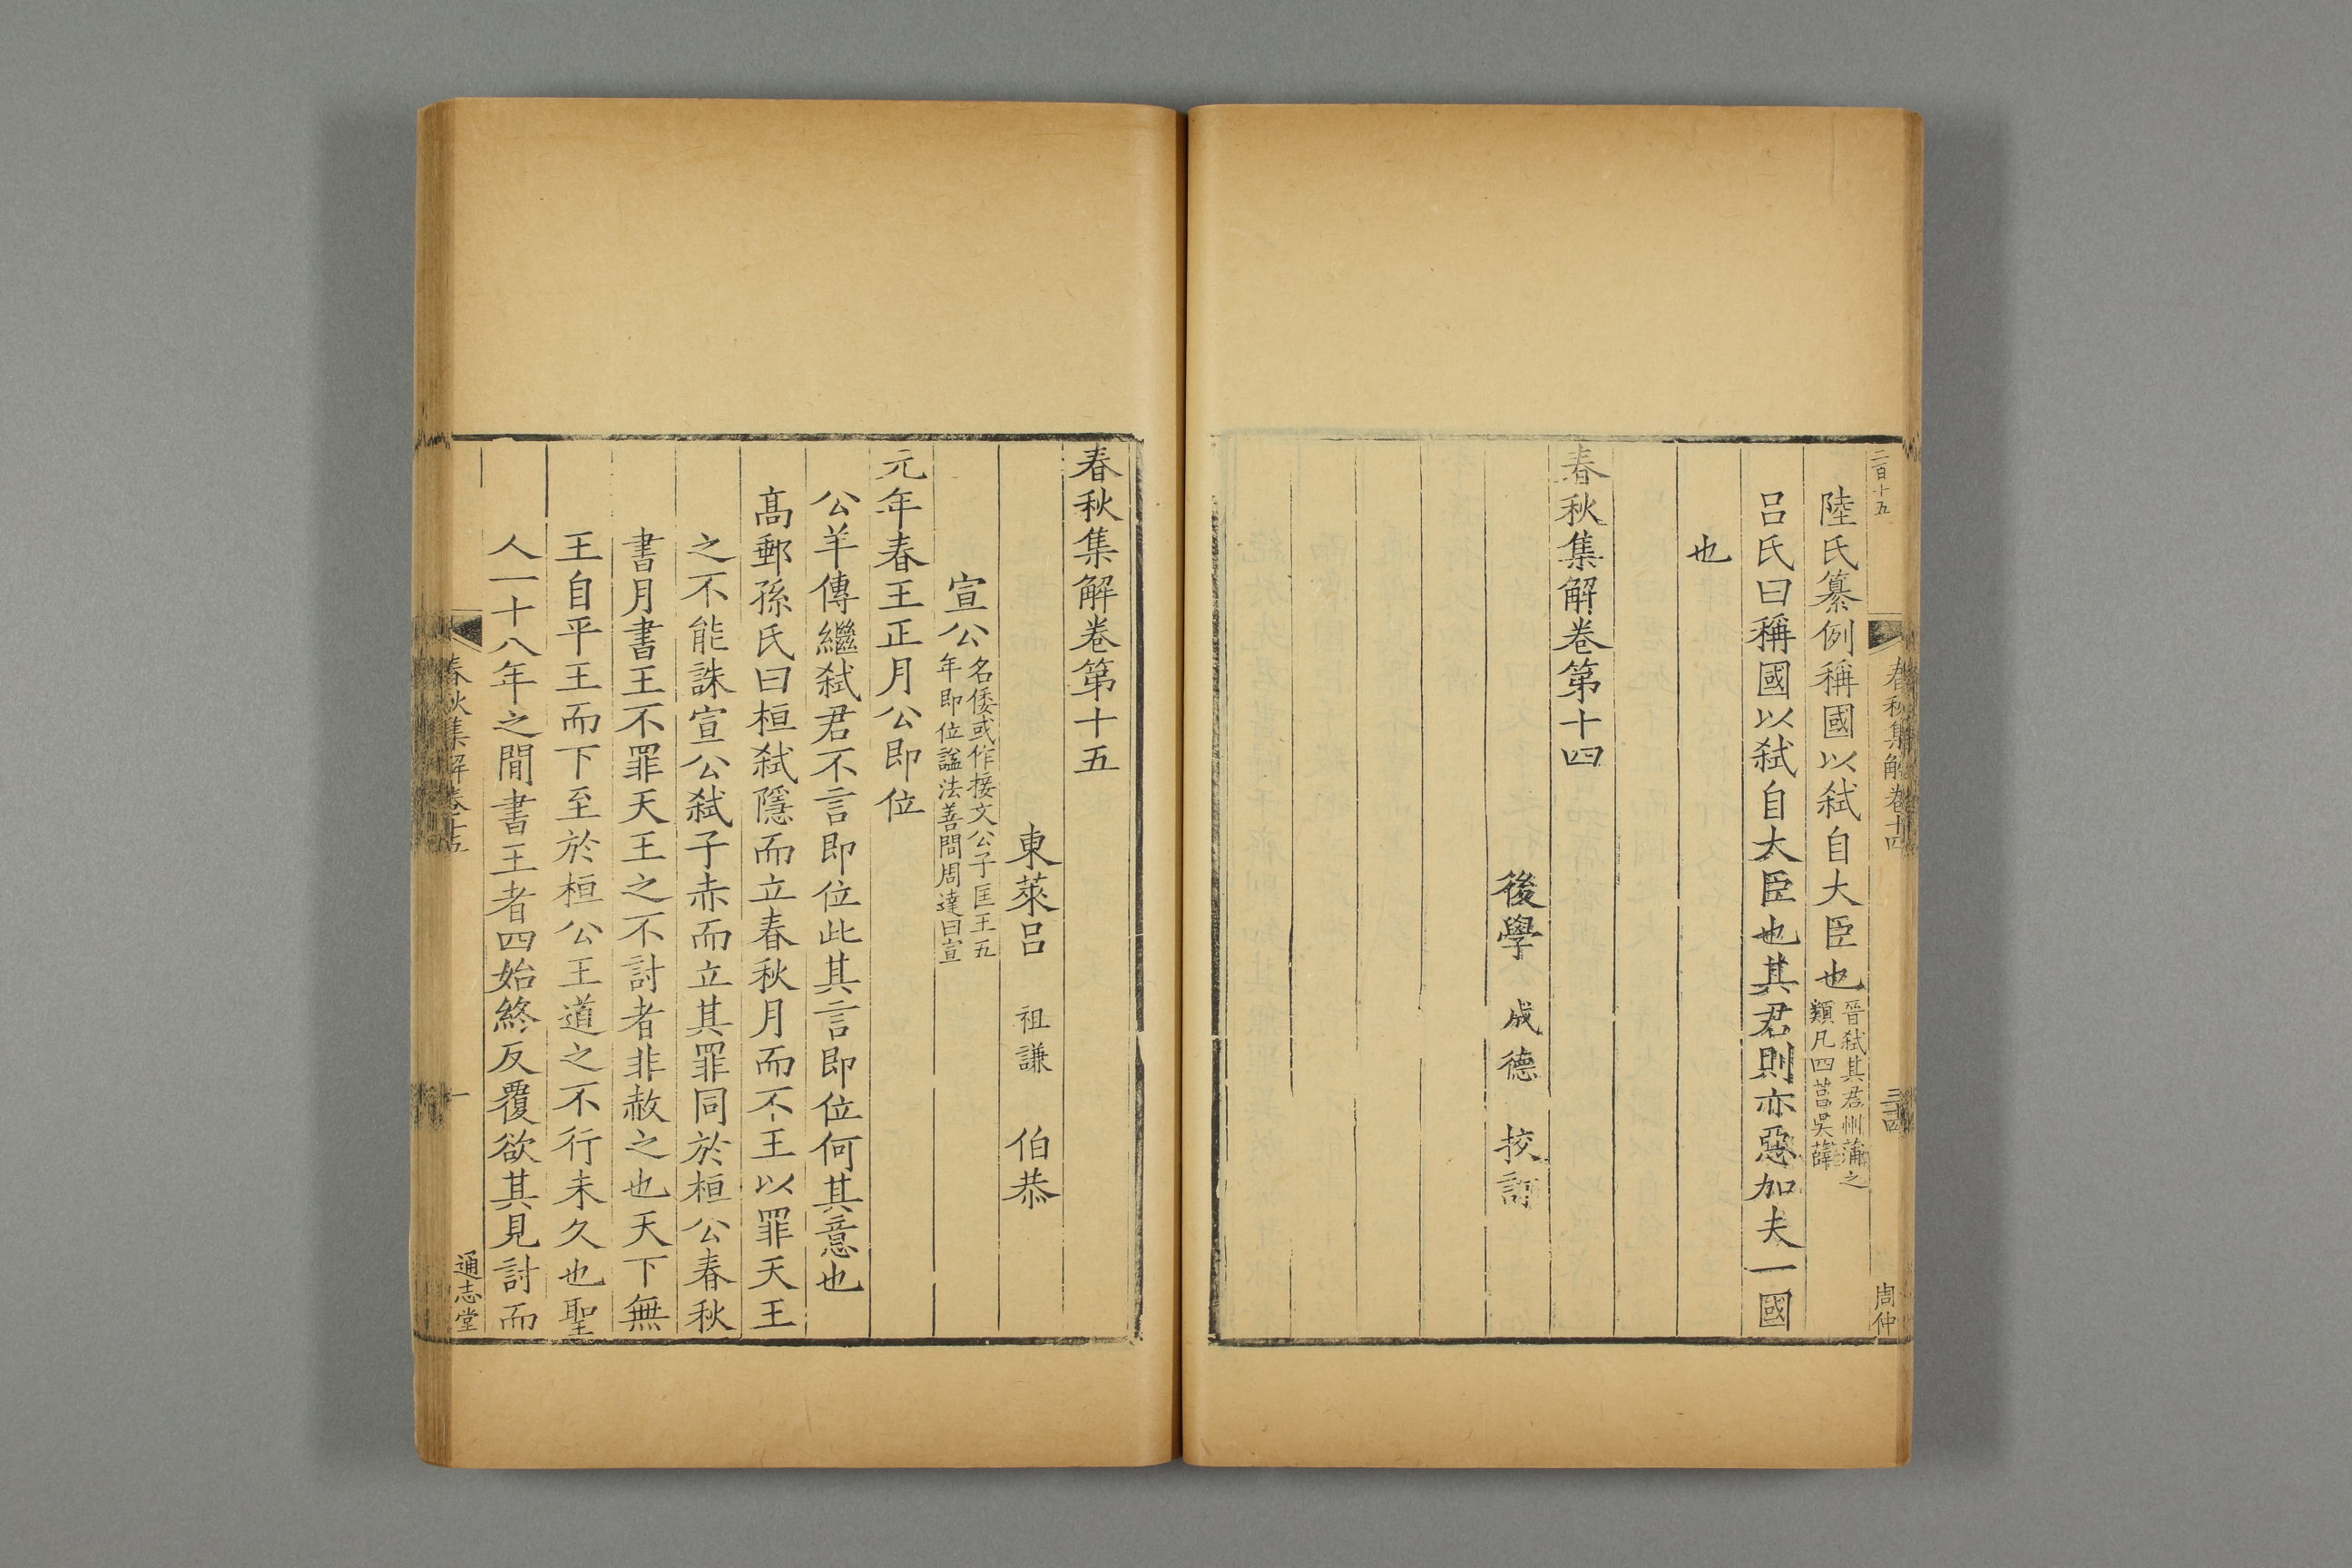 二百十五
春秋集解卷十四
三十四
周仲
陸氏纂例稱國以弑自大臣也晉弑其君州蒲之
類凡四莒吳薛
呂氏曰稱國以弑自大臣也其君則亦惡加夫一國
也
春秋集解卷第十四
後學 成德 挍訂
春秋集解卷第十五
東萊呂 祖謙 伯恭
宣公名倭或作接文公子匡王五
年即位諡法善問周達曰宣
元年春王正月公即位
公羊傳繼弑君不言即位此其言即位何其意也
髙郵孫氏曰桓弑隱而立春秋月而不王以罪天王
之不能誅宣公弑子赤而立其罪同於桓公春秋
書月書王不罪天王之不討者非赦之也天下無
王自平王而下至於桓公王道之不行未久也聖
人一十八年之間書王者四始終反覆欲其見討而
春秋集解卷十五
一
通志堂